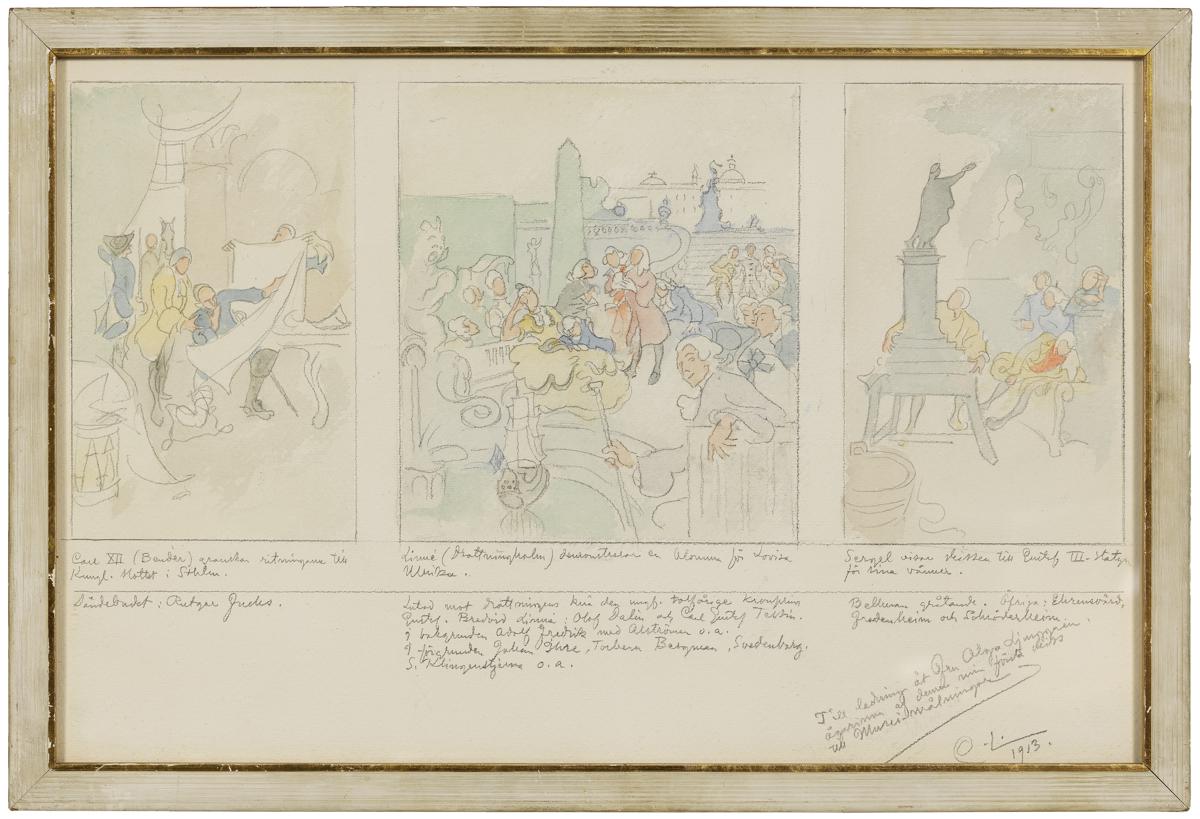 Carl XII (Bender) granskar ritningarna till
Kungl. slottet i Sthlm.
Sändebudet: Rutger Fuchs.
Linné (Drottningholm) demonstrerar en blomma för Lovisa
Ulrika.
Lutad mot drottningens knä den ungf. tolfårige kronprins
Gustaf. Bredvid Linné: Olof Dalin och Carl Gustaf Tessin.
I bakgrunden Adolf Fredrik med Alströmer o.a.
I förgrunden Johan Ihre, Torbern Bergman, Svedenborg.
S. Klingenstjerna o.a.
Sergel visar skissen till Gustaf III-statyn
för sina vänner.
Bellman gråtande. Öfriga: Ehrensvärd,
Fredenheim och Schröderheim.
Till ledning åt Fru Olga
ägarinna af denna min första skiss
till Musei-målningar
O. L.
1913.